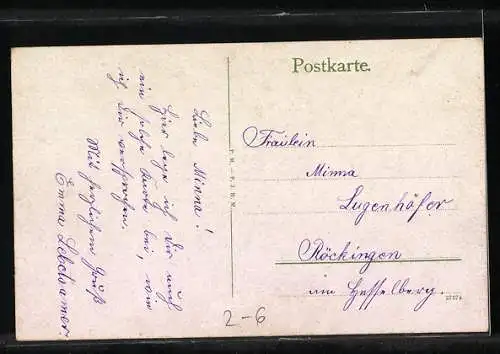 Postkarte.
Liebe Minna!
Hier lege ich Dir auch
eine solche Karte bei, wie
ich Dir versprochen.
Mit herzlichem Gruß
Emma
Fräulein
Minna
Lugenhöfer
Röckingen
am Hesselberg.
2-6